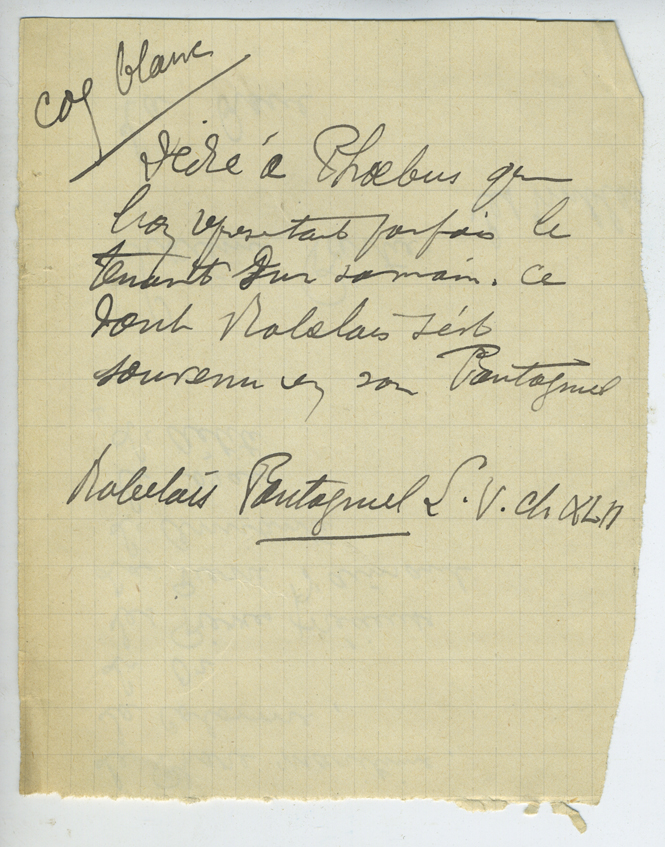 coq blanc
Dédié à Phoebus que
l'on représentait parfois le
tenant dans sa main. ce
dont Rabelais s'est
souvenu en son Pantagruel
Rabelais Pantagruel L. V. ch XLII